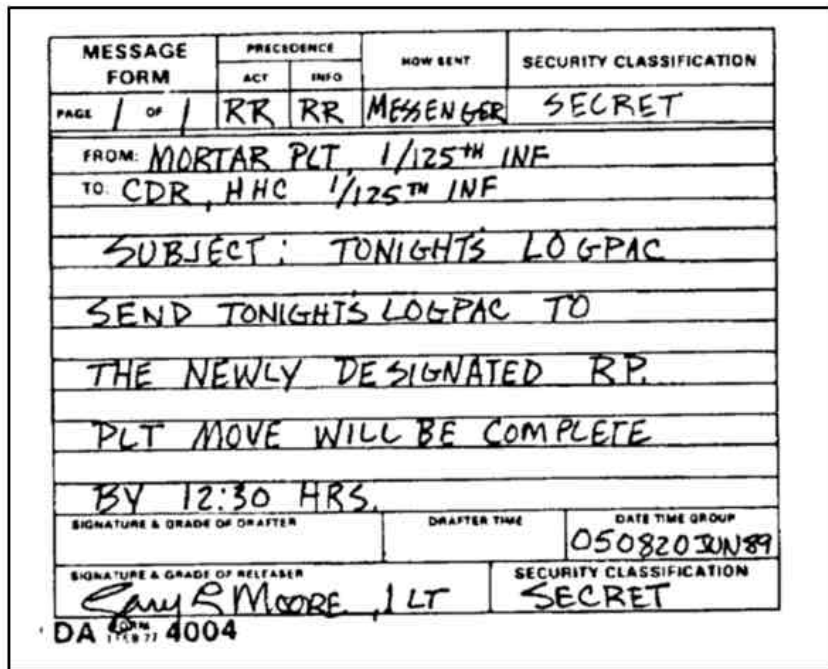 MESSAGE FORM PRECEDENCE HOW SENT SECURITY CLASSIFICATION
ACT INFO
PAGE 1 OF 1 RR RR MESSENGER SECRET
FROM: MORTAR PLT, 1/125TH INF
TO: CDR, HHC 1/125TH INF
SUBJECT: TONIGHTS LOGPAC
SEND TONIGHT'S LOGPAC TO
THE NEWLY DESIGNATED RP.
PLT MOVE WILL BE COMPLETE
BY 12:30 HRS.
SIGNATURE & GRADE OF DRAFTER DRAFTER TIME DATE TIME GROUP
050820JUN89
SIGNATURE & GRADE OF RELEASER SECURITY CLASSIFICATION
Gary MOORE, 1LT SECRET
DA FORM 4004